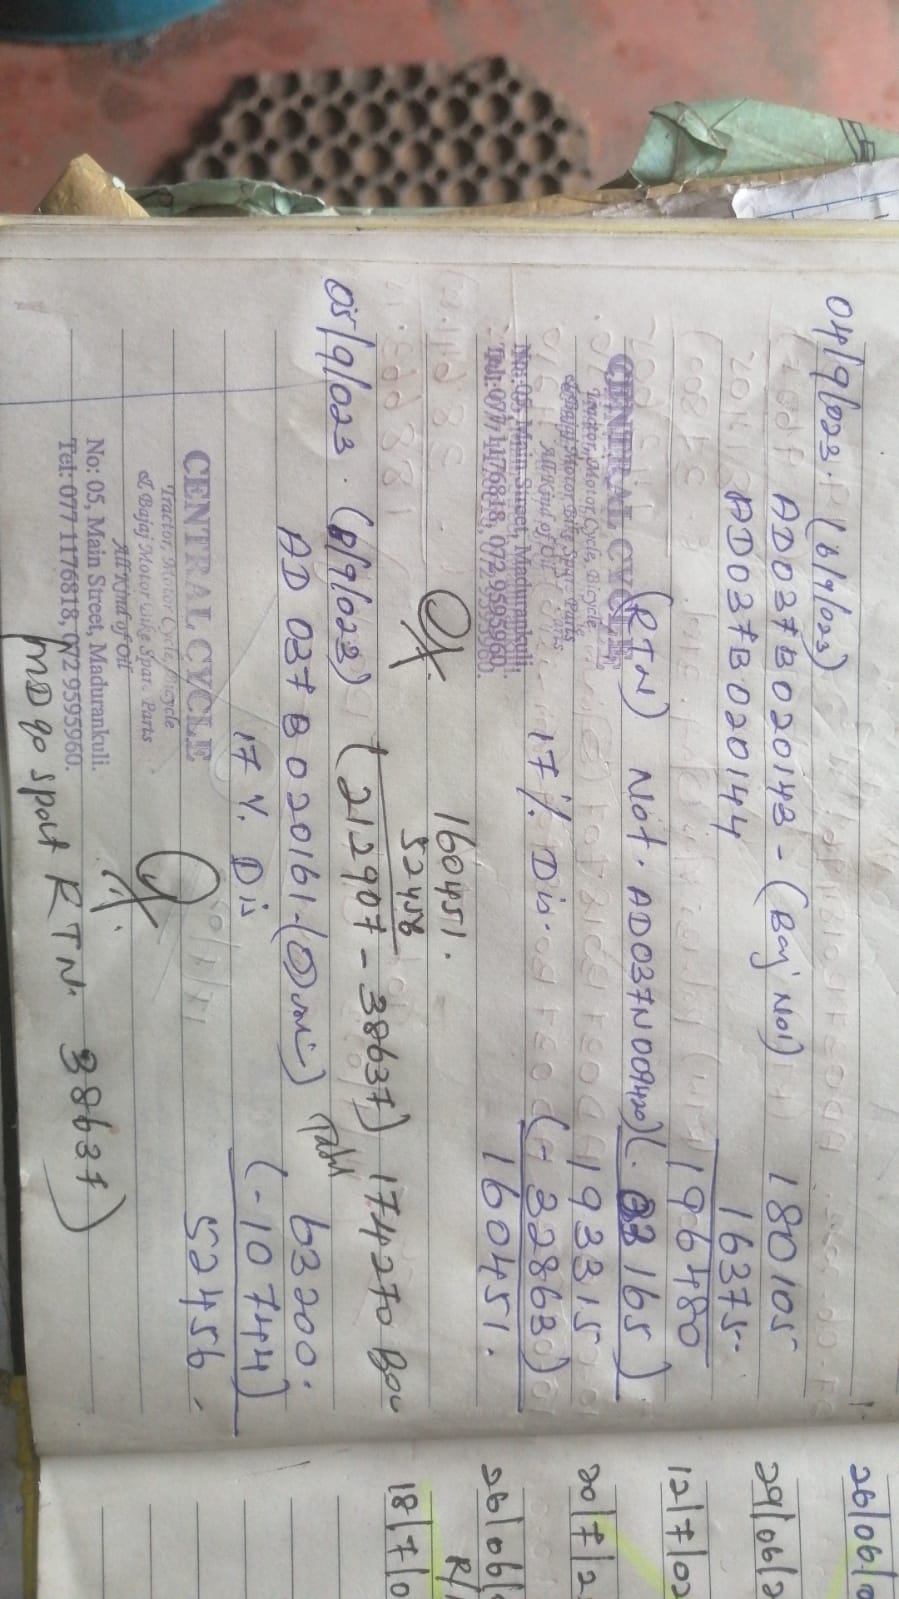 04/9/023. (6/9/023)
AD037B020143 - (Baj No1) 180105
AD037B020144 16375.
196480
(RTN) Not. AD037N009420) (. 3165)
193315
17%. Dis. (- 32863)
160451.
CENTRAL CYCLE
Tractor, Motor Cycle, Bicycle
& Bajaj Motor Bike Spar. Parts
All Kind of Oil
No: 05, Main Street, Madurankuli.
Tel: 077 1176818, 072 9595960.
OK.
160451.
52456
(212907 - 38637) 174270
05/9/023. (6/9/023)
AD 037 B 020161- 63200.
17 %. Dis (-10744)
52456.
CENTRAL CYCLE
Tractor, Motor Cycle, Bicycle
& Bajaj Motor Bike Spar. Parts
All Kind of Oil
No: 05, Main Street, Madurankuli.
Tel: 077 1176818, 072 9595960.
RTN. 38637)
26/06/0
29/06/2
12/7/02
20/7/2
26/06/
R/
18/7/0